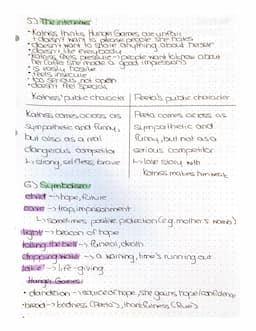 5.) The interviews
• Katniss thinks Hunger Games are unfair
• doesn't want to please people she hates
• doesn't want to share anything about herself
• doesn't like everybody
• Katniss feels pressure → people want to know about her (after she made a good impression)
• is really hostile
• feels insecure
• too serious, not open
• doesn't feel special
Katniss' public character | Peeta's public character
Katniss comes across as sympathetic and funny, but also as a real dangerous competitor
↳ strong, selfless, brave
Peeta comes across as sympathetic and funny, but not as a serious competitor
↳ love story with Katniss makes him weak
6.) Symbolism
child → hope, future
cave → trap, imprisonment
↳ sometimes positive: protection (e.g. mother's womb)
light → beacon of hope
tolling the bell → funeral, death
dripping water → a warning, time's running out
lake → life-giving
Hunger Games:
• dandelion → source of hope, she gains hope/confidence
• bread → kindness (Peeta's), thankfulness (Rue's)